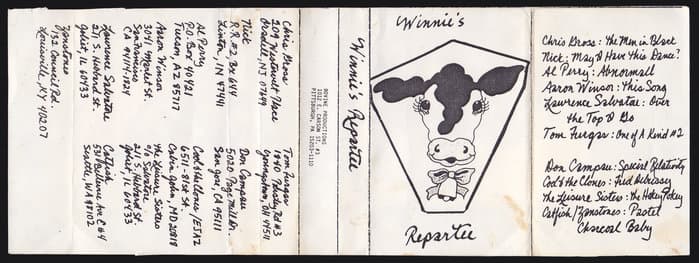 Chris Kross
209 Westcourt Place
Nick
R.R. #2, Box 644
Linton, IN 47441
Al Perry
P.O. Box 40421
Tucson, AZ 85717
Aaron Winsor
3041 Market St.
San Francisco
CA 94114-1824
Lawrence Salvatore
211 S. Hebbard St.
Joliet, IL 60433
Zanstones
7132 Council Rd.
Louisville, KY 40207
Tom Furgas
Youngstown, OH 44511
Don Campau
San Jose, CA 95111
Cool & the Clones / EJAZ
6511-81st St
Cabin John, MD 20818
The Leisure Sisters
c/o Salvatore
211 S. Hebbard St.
Joliet, IL 60433
Catfish
Seattle, WA 98102
BOVINE PRODUCTIONS
1912 E. CARSON ST. #3
PITTSBURGH, PA 15203-1110
Winnie's Repartee
Winnie's
Repartee
Chris Kross: The Men in Black
Nick: May I Have this Dance?
Al Perry: Abnormal
Aaron Winsor: This Song
Lawrence Salvatore: Over
the Top I Go
Tom Furgas: One of A Kind #2
Don Campau: Special Relativity
Cool & the Clones: Fred Debussy
The Leisure Sisters: The Hokey Pokey
Catfish/Zanstones: Pastel
Charcoal Baby